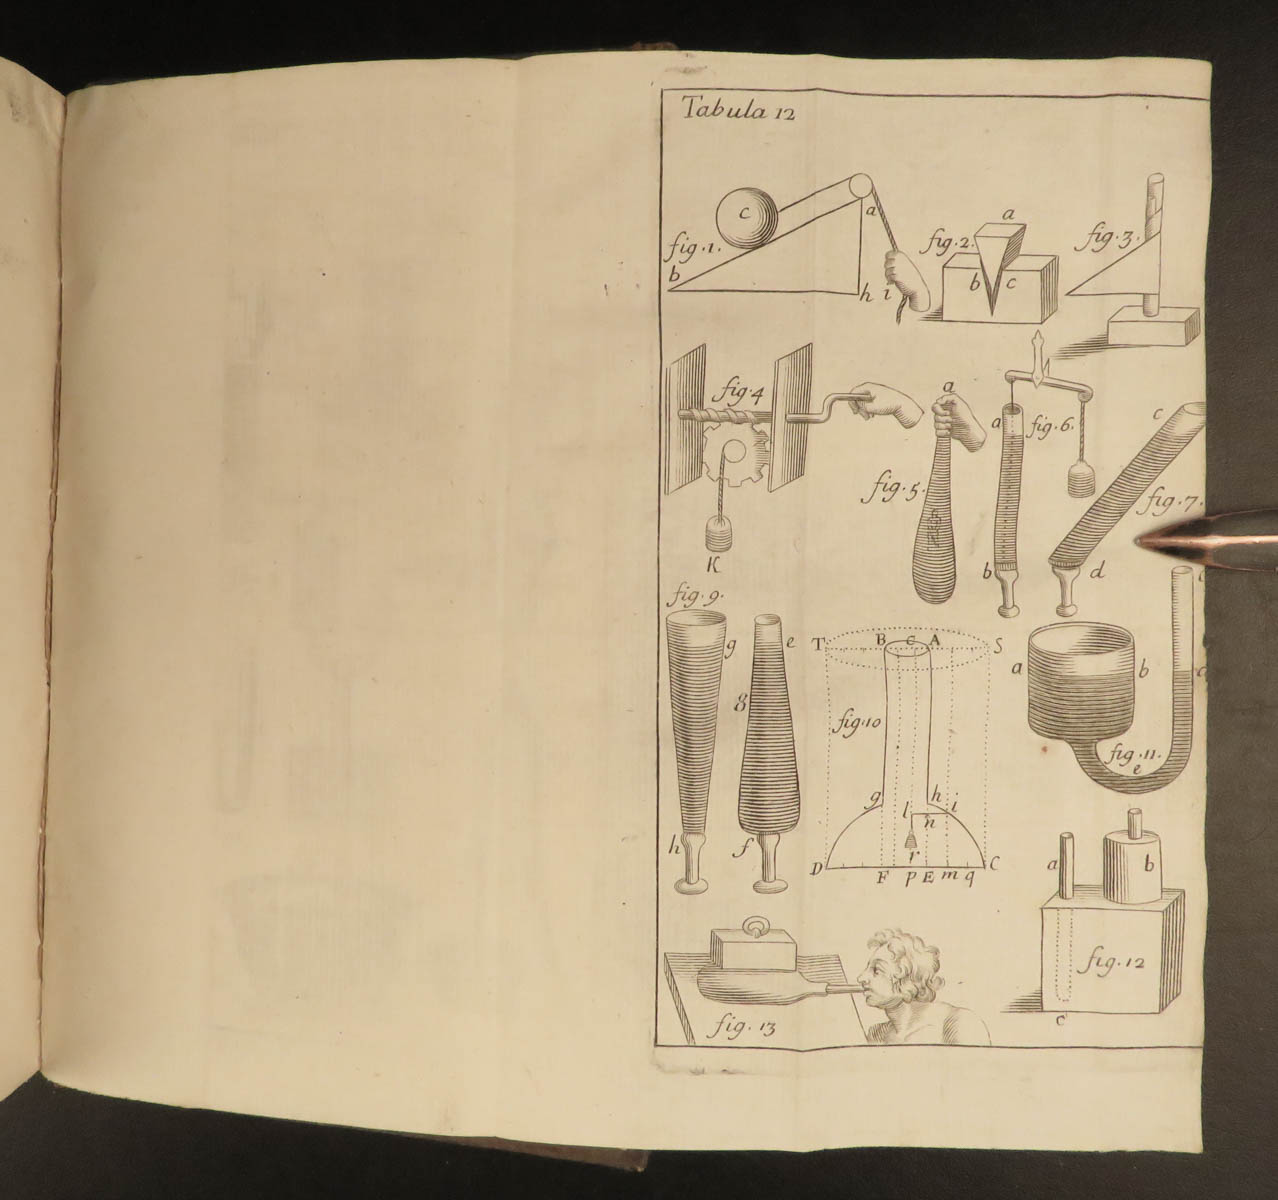 Tabula 12
c
a
fig. 1.
b
h
i
a
fig. 2.
b
c
fig. 3.
fig. 4
K
a
fig. 5.
a
fig. 6.
b
c
fig. 7.
d
fig. 9.
g
h
e
8
f
T
B
c
A
S
fig. 10
g
h
l
i
n
r
D
F
p
E
m
q
C
a
b
fig. 11.
e
a
b
fig. 12
c
fig. 13